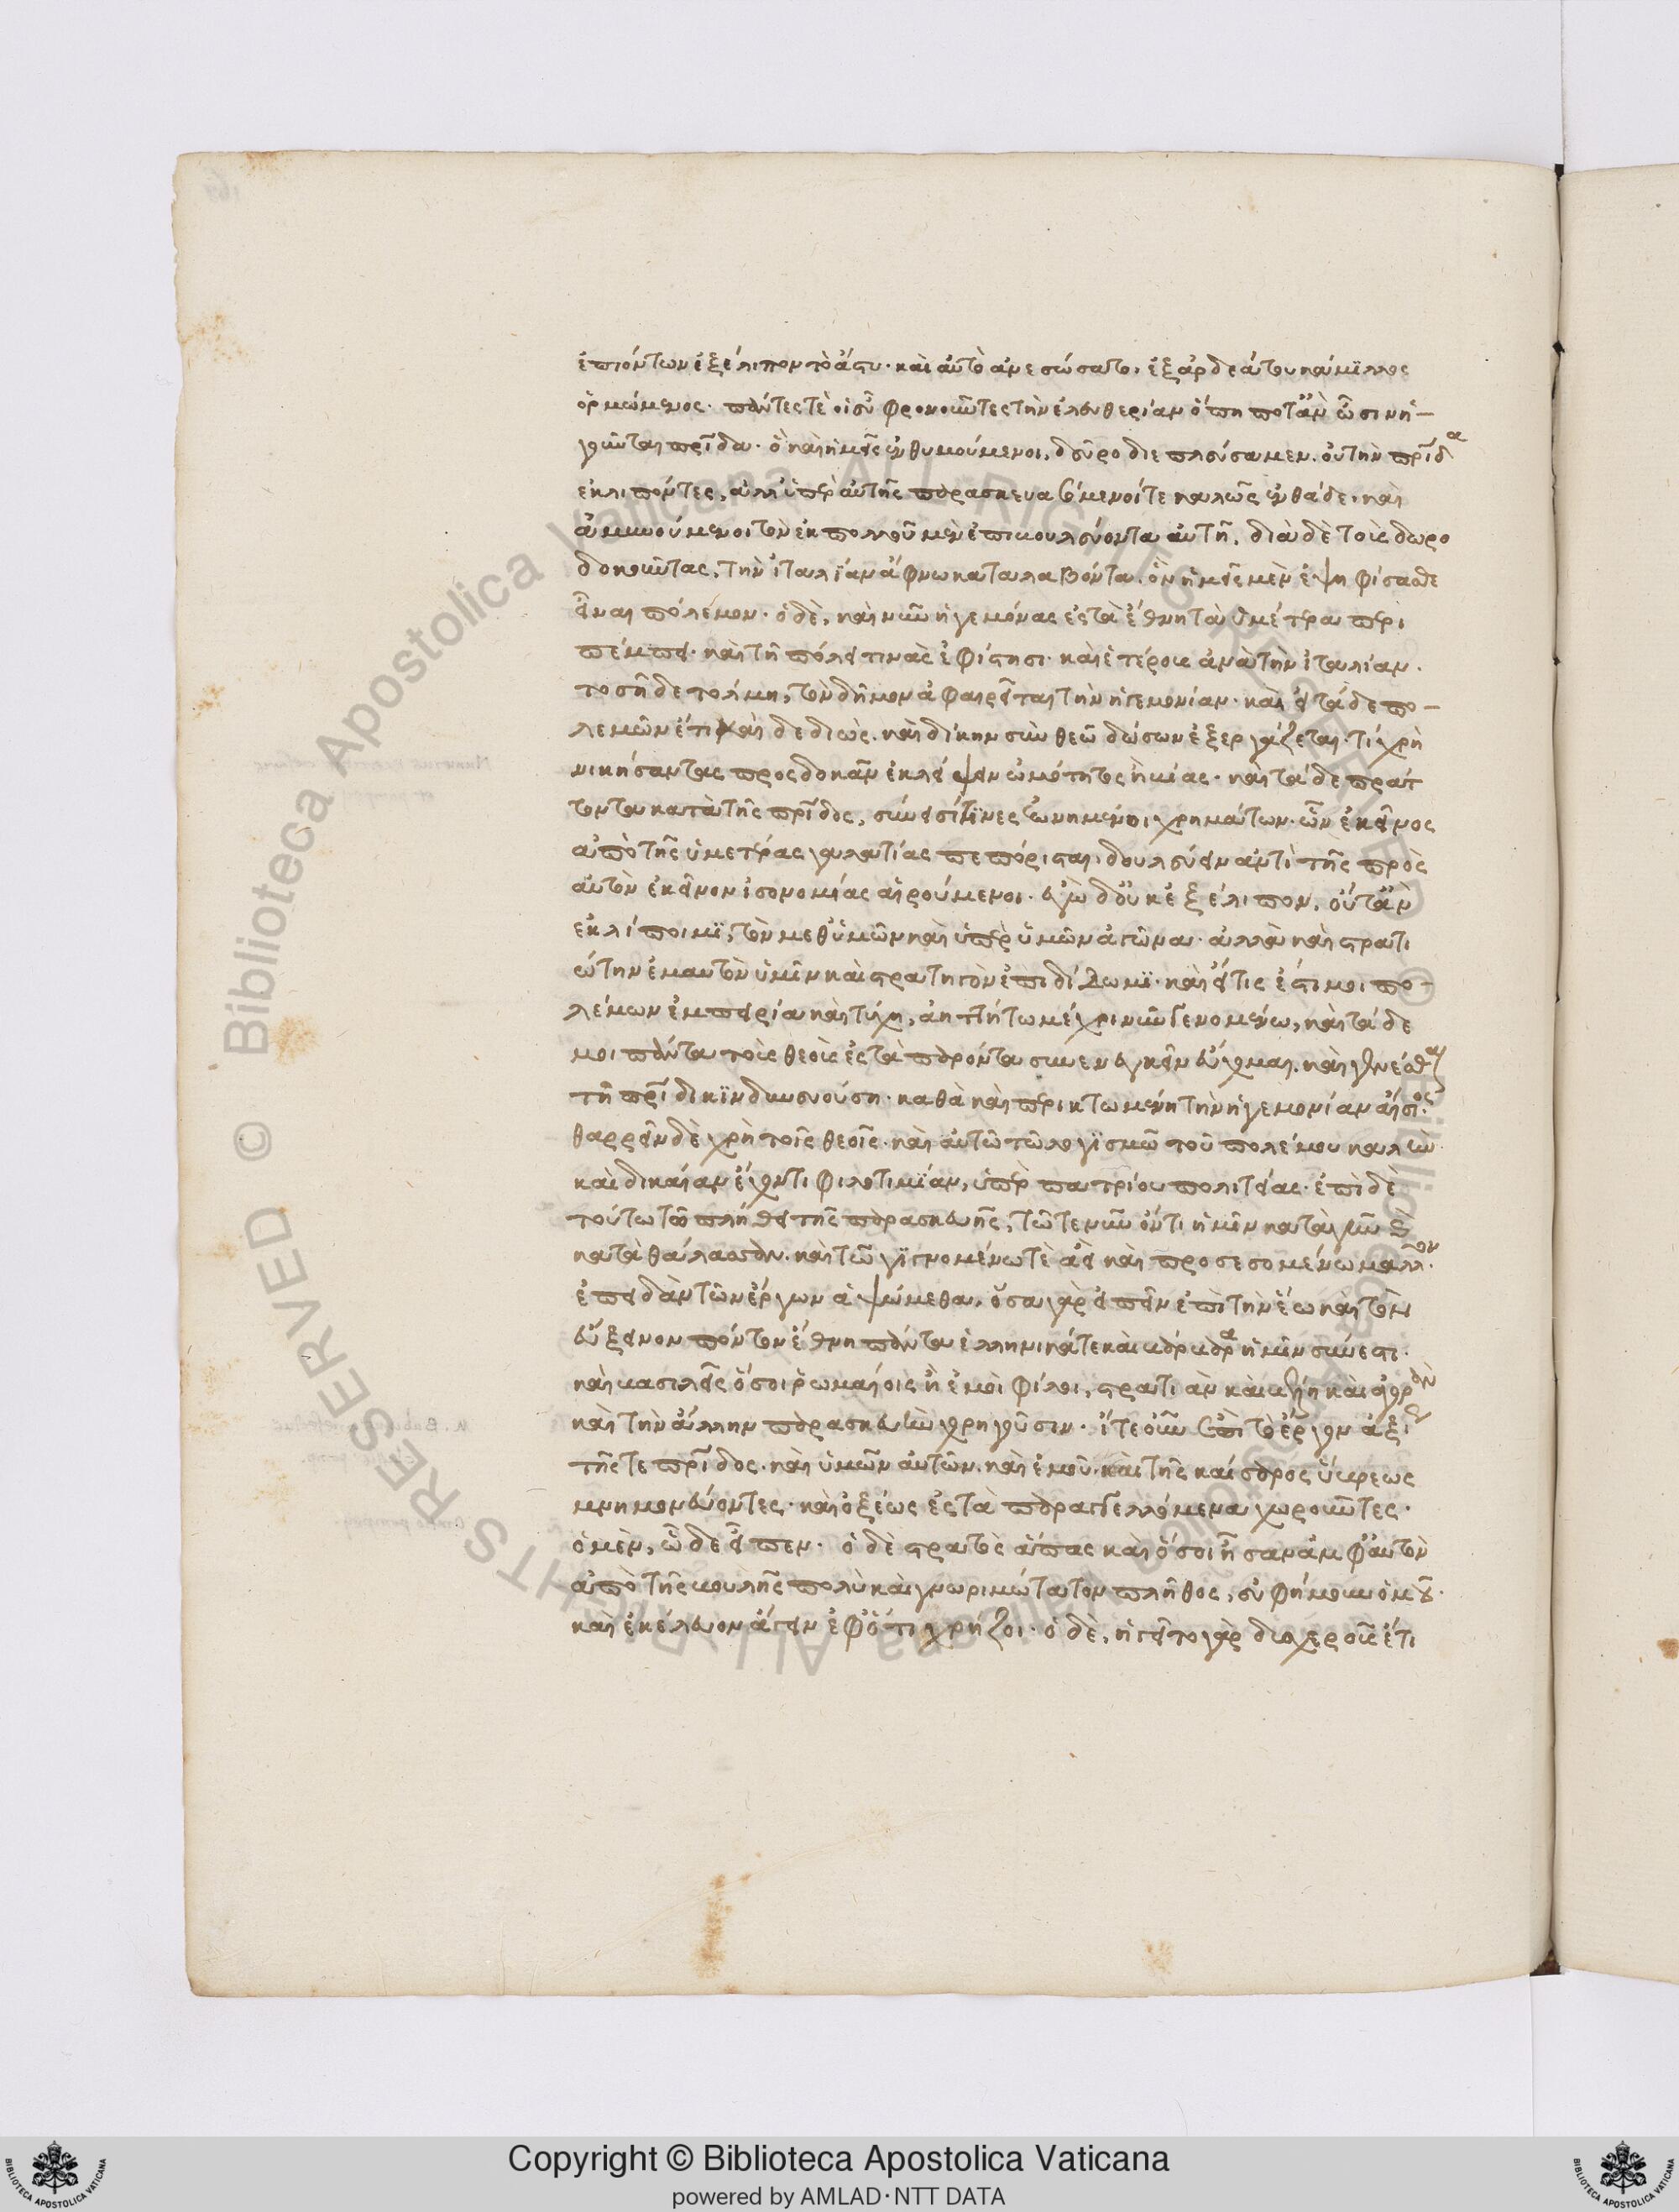 ἐπιόντων ἐξέλιπον τὸ ἄστυ· καὶ αὐτὸ ἀνεσώσατο, ἐξ ἀρδεάτου κάμϊλλος
ὁρμώμενος· πάντες τὲ οἱ εὖ φρονοῦντες τὴν ἐλευθερίαν ὅπη ποτ' ἂν ὦσιν ἡ-
γοῦνται πρῖδα· ὃ καὶ ἡμεῖς ἐνθυμούμενοι, δεῦρο διεπλεύσαμεν. οὐ τὴν πρῖδα
ἐκλιπόντες, ἀλλ' ὑπὲρ αὐτῆς παρασκευασόμενοί τε καλῶς ἐνθάδε, καὶ
ἀμυνούμενοι τὸν ἐκ πολλοῦ μὲν ἐπιβουλεύοντα αὐτῆ, διὰ δὲ τοὺς δωρο
δοκοῦντας, τὴν ἰταλϊαν ἄφνω καταλαβόντα. ὃν ἡμεῖς μὲν ἐψηφίσασθε
εἶναι πολέμιον· ὁ δὲ, καὶ νῦν ἡγεμόνας ἐς τὰ ἔθνη τὰ ὑμέτερα περι
πέμπει· καὶ τῆ πόλει τινὰς ἐφίστησι· καὶ ἑτέρους ἀνὰ τὴν ἰταλίαν.
τοσῆδε τόλμη, τὸν δῆμον ἀφαιρεῖται τὴν ἡγεμονίαν· καὶ εἰ τάδε πο-
λεμῶν ἔτι καὶ δεδιὼς. καὶ δίκην σὺν θεῶ δώσων ἐξεργάζεται. τί χρὴ
νικήσαντας προςδοκᾶν ἐκλείψειν ὠμότητος ἢ βίας· καὶ τάδε πράτ
τοντα κατὰ τῆς πρῖδος, σύνεισί τϊνες ἐωνημένοι χρημάτων· ὧν ἐκεῖνος
ἀπὸ τῆς ὑμετέρας γαλατίας πεπόρισται, δουλεύειν ἀντὶ τῆς πρὸς
αὐτὸν ἐκεῖνον ἰσονομίας αἱρούμενοι. ἐγὼ δ' οὐκ ἐξέλιπον, οὔτ' ἂν
ἐκλίποιμϊ, τὸν μεθ' ὑμῶν καὶ ὑπὲρ ὑμῶν ἀγῶνα. ἀλλὰ καὶ στρατι
ώτην ἐμαυτὸν ὑμῖν καὶ στρατηγὸν ἐπιδίδωμϊ· καὶ εἴ τις ἐστί μοι πο-
λέμων ἐμπειρία καὶ τύχη, ἀηττήτω μέχρι νῦν γενομένω, καὶ τάδε
μοι πάντα τοὺς θεοὺς ἐς τὰ παρόντα συνενεγκεῖν εὔχομαι. καὶ γενέσθαι
τῆ πρῖδι κϊνδυνευούση. καθὰ καὶ περικτωμένη τὴν ἡγεμονίαν αἴσιος.
θαρρεῖν δὲ χρὴ τοῖς θεοῖς. καὶ αὐτῶ τῶ λογϊσμῶ τοῦ πολέμου καλὴν
καὶ δικαίαν ἔχοντι φιλοτιμϊαν, ὑπὲρ πατρίου πολιτείας. ἐπὶ δὲ
τούτω τῶ πλήθει τῆς παρασκευῆς, τῶ τε νῦν ὄντι ἡμῖν κατὰ γῆν καὶ
κατὰ θάλασσαν. καὶ τῶ γϊγνομένω τὲ ἀεὶ καὶ προσεσομένω μᾶλλον.
ἐπειδὰν τῶν ἔργων ἁψώμεθα, ὅσα γὰρ εἰπεῖν ἐπὶ τὴν ἕω καὶ τὸν
εὔξεινον πόντον ἔθνη πάντα ἑλληνικά τε καὶ βάρβαρα ἡμῖν σύνεστι.
καὶ βασιλεῖς ὅσοι ῥωμαίοις ἢ ἐμοὶ φίλοι, στρατιὰν καὶ βέλη καὶ ἀγορὰν
καὶ τὴν ἄλλην παρασκευὴν χορηγοῦσιν. ἴτε οὖν ἐπὶ τὸ ἔργον ἀξίως
τῆς τε πρῖδος· καὶ ὑμῶν αὐτῶν. καὶ ἐμοῦ· καὶ τῆς καίσαρος ὕβρεως
μνημονεύοντες. καὶ ὀξέως ἐς τὰ παραγγελλόμενα χωροῦντες.
ὁ μὲν, ὧδε εἶπεν. ὁ δὲ στρατὸς ἅπας καὶ ὅσοι ἦσαν ἀμφ' αὐτὸν
ἀπὸ τῆς βουλῆς πολὺ καὶ γνωριμώτατον πλῆθος, εὐφήμουν ὁμοῦ.
καὶ ἐκέλευον ἄγειν ἐφ' ὅ τι χρήζοι. ὁ δὲ, ἡγεῖτο γὰρ δυσχεροῦς ἔτι
Copyright © Biblioteca Apostolica Vaticana
powered by AMLAD·NTT DATA